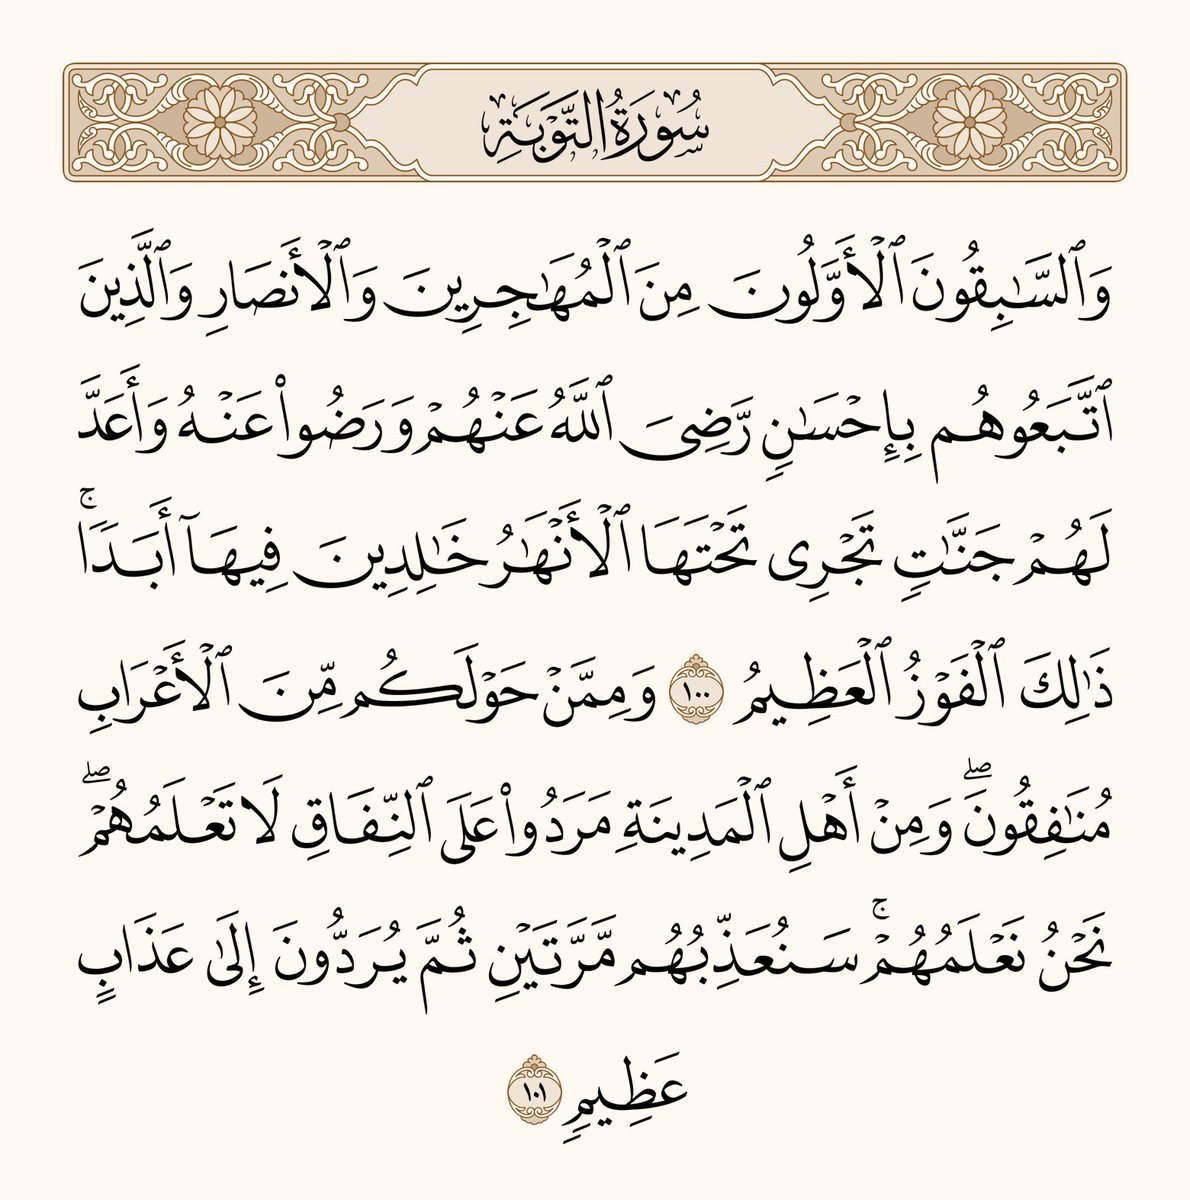 سُورَةُ التَّوۡبَةِ
وَٱلسَّٰبِقُونَ ٱلۡأَوَّلُونَ مِنَ ٱلۡمُهَٰجِرِينَ وَٱلۡأَنصَارِ وَٱلَّذِينَ
ٱتَّبَعُوهُم بِإِحۡسَٰنٖ رَّضِيَ ٱللَّهُ عَنۡهُمۡ وَرَضُواْ عَنۡهُ وَأَعَدَّ
لَهُمۡ جَنَّٰتٖ تَجۡرِي تَحۡتَهَا ٱلۡأَنۡهَٰرُ خَٰلِدِينَ فِيهَآ أَبَدٗاۚ
ذَٰلِكَ ٱلۡفَوۡزُ ٱلۡعَظِيمُ ١٠٠ وَمِمَّنۡ حَوۡلَكُم مِّنَ ٱلۡأَعۡرَابِ
مُنَٰفِقُونَۖ وَمِنۡ أَهۡلِ ٱلۡمَدِينَةِ مَرَدُواْ عَلَى ٱلنِّفَاقِ لَا تَعۡلَمُهُمۡۖ
نَحۡنُ نَعۡلَمُهُمۡۚ سَنُعَذِّبُهُم مَّرَّتَيۡنِ ثُمَّ يُرَدُّونَ إِلَىٰ عَذَابٍ
عَظِيمٖ ١٠١